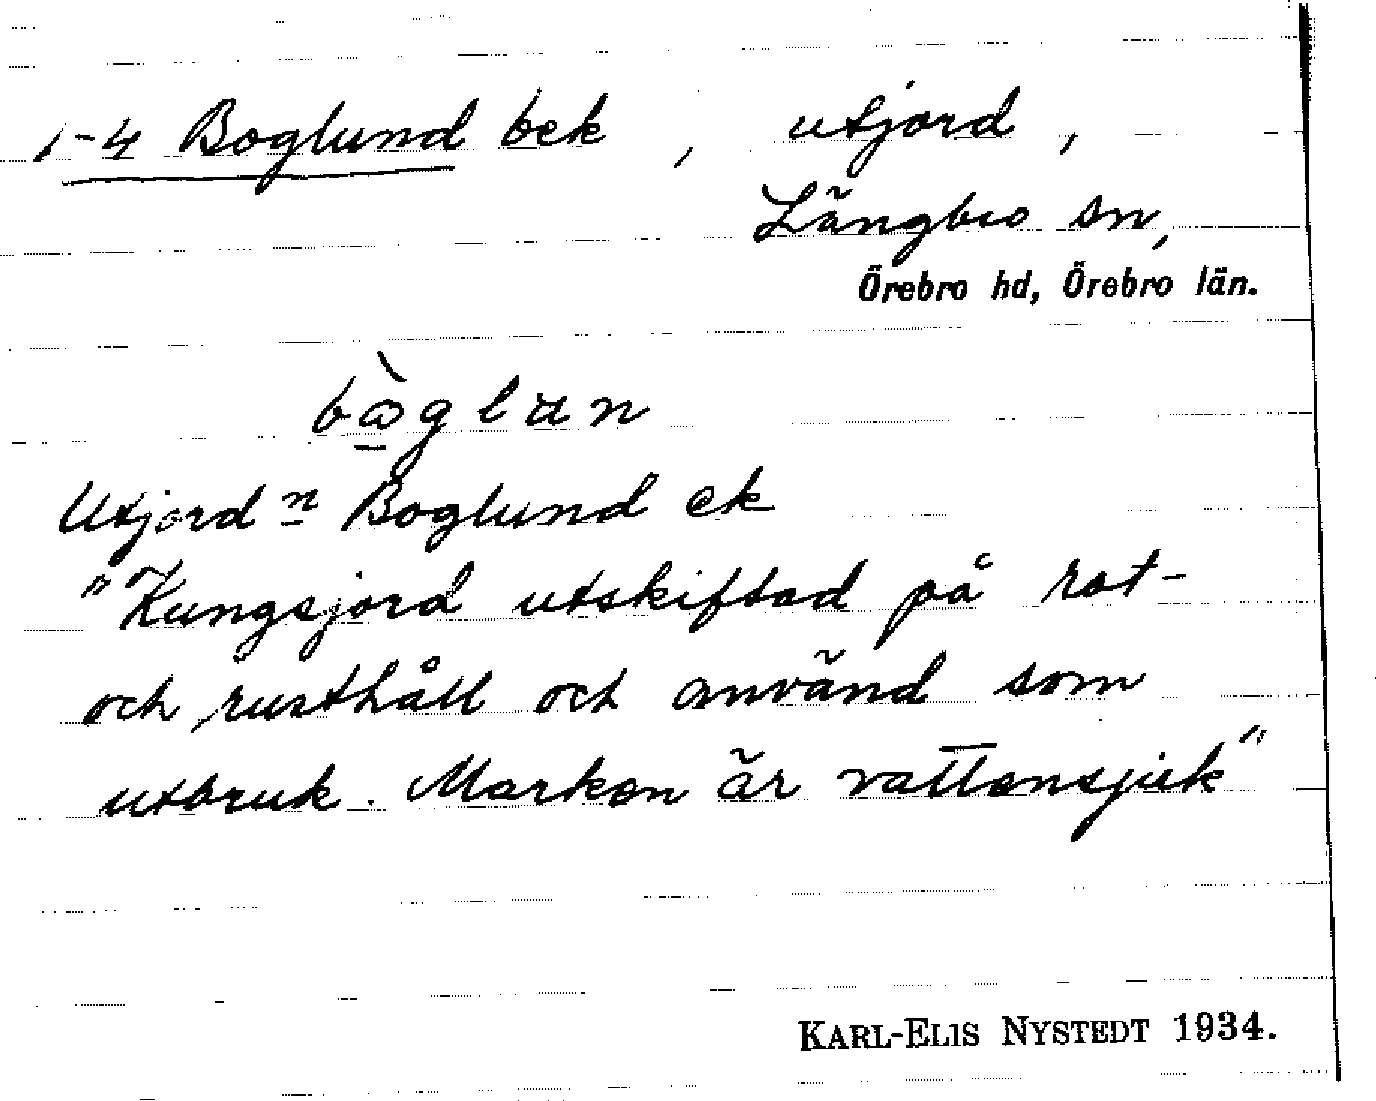 1-4 Boglund bek , utjord ,
Längbro sn,
Örebro hd, Örebro län.
bò̱glun
Utjordn Boglund ek
"Kungsjord utskiftad på rot-
och rusthåll och använd som
utbruk. Marken är vattensjuk"
KARL-ELIS NYSTEDT 1934.